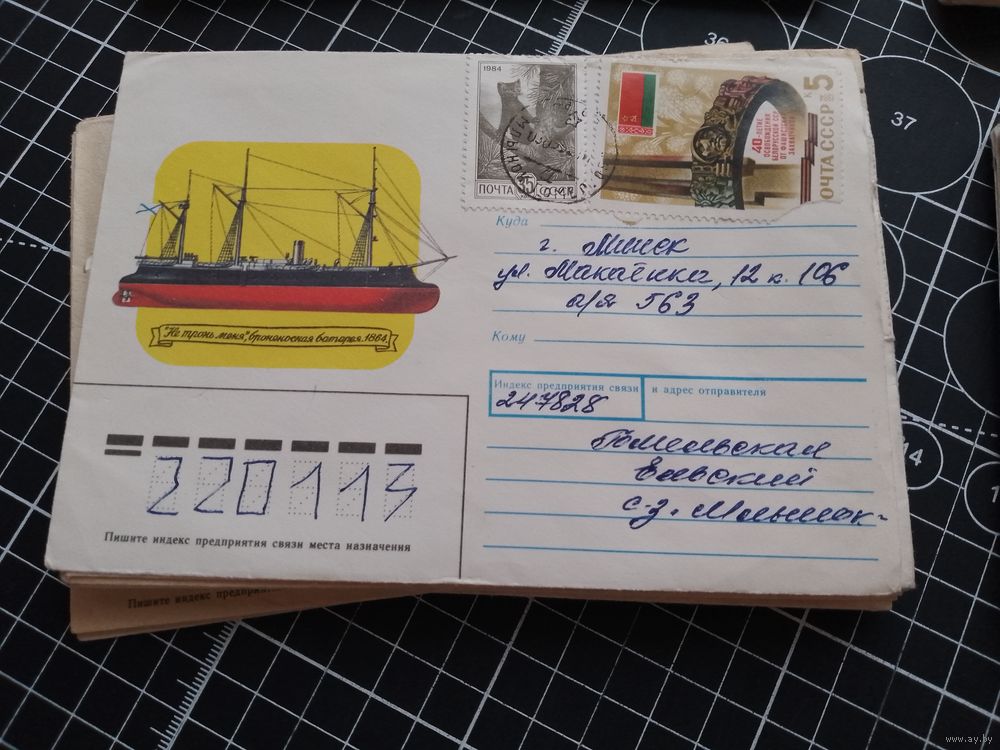 36
37
14
1984
ПОЧТА 35 СССР
40-ЛЕТИЕ
ОСВОБОЖДЕНИЯ
БЕЛОРУССКОЙ ССР
ОТ ФАШИСТСКИХ
ЗАХВАТЧИКОВ
ПОЧТА СССР 5 К
Куда
г. Минск
ул. Макаёнка, 12 к. 106
а/я 563
Кому
"Не тронь меня", броненосная батарея. 1864.
Индекс предприятия связи и адрес отправителя
247828
Гомельская
Ельский
с-з.
220113
Пишите индекс предприятия связи места назначения
Пишите индекс
www.ay.by